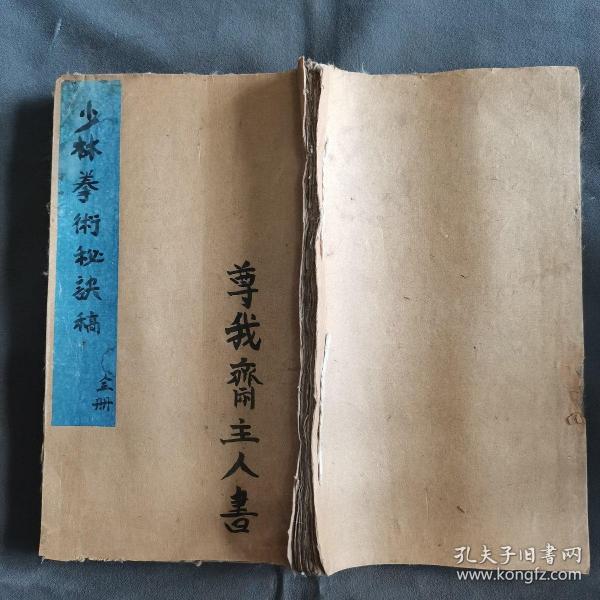 少林拳術秘訣稿
全册
尊我齋主人書
孔夫子旧书网
www.kongfz.com